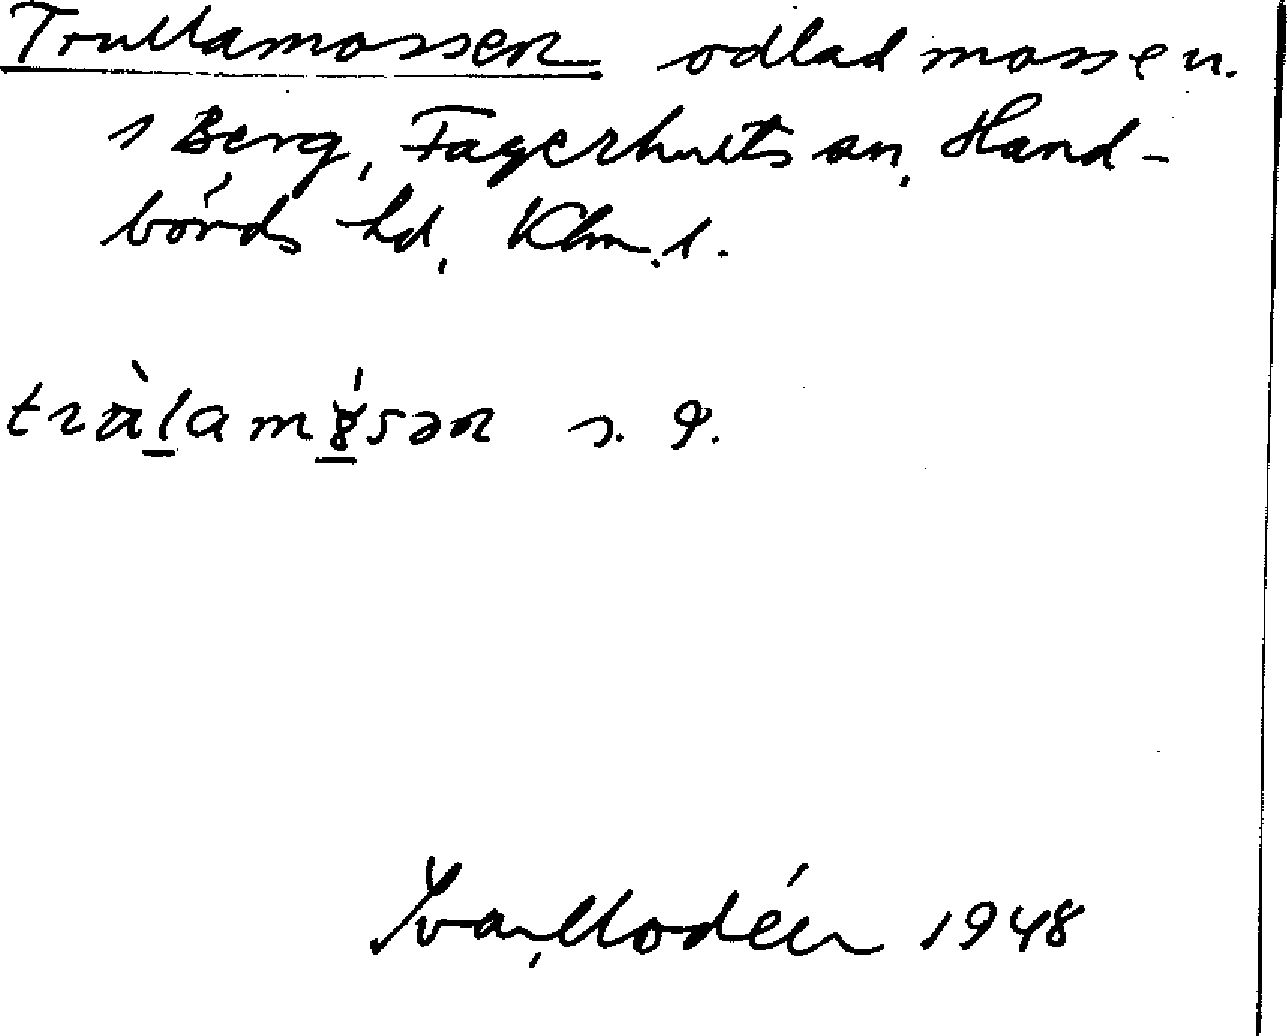 Trullamossen odlad mossen.
i Berg, Fagerhults sn, Hand-
börds hd, Klm. l.
tralamɤsən s. g.
Ivar Modéer 1948